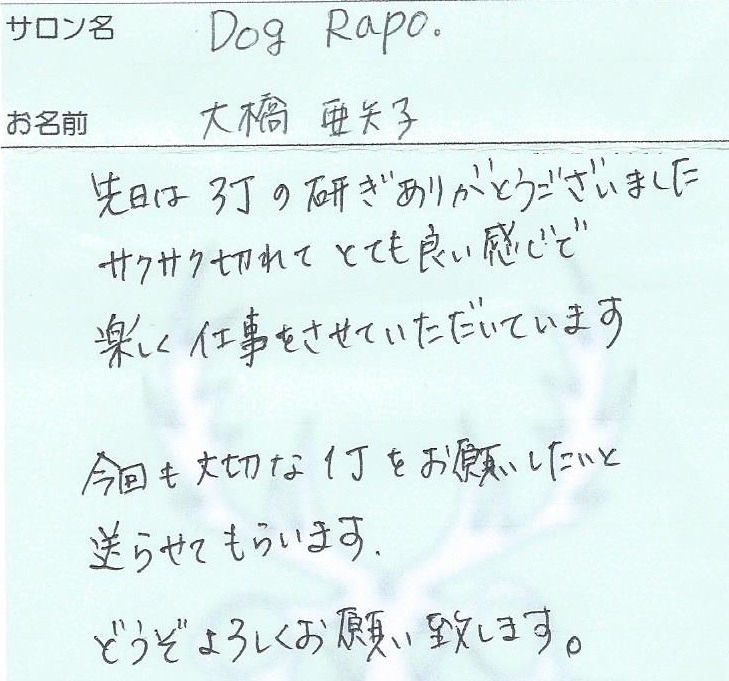 サロン名 Dog Rapo.
お名前 大橋 亜矢子
先日は 3丁の研ぎありがとうございました
サクサク切れて とても良い感じで
楽しく仕事をさせていただいています
今回も大切な1丁をお願いしたいと
送らせてもらいます.
どうぞよろしくお願い致します。